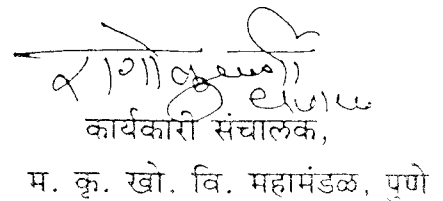 कार्यकारी संचालक,
म. कृ. खो. वि. महामंडळ, पुणे